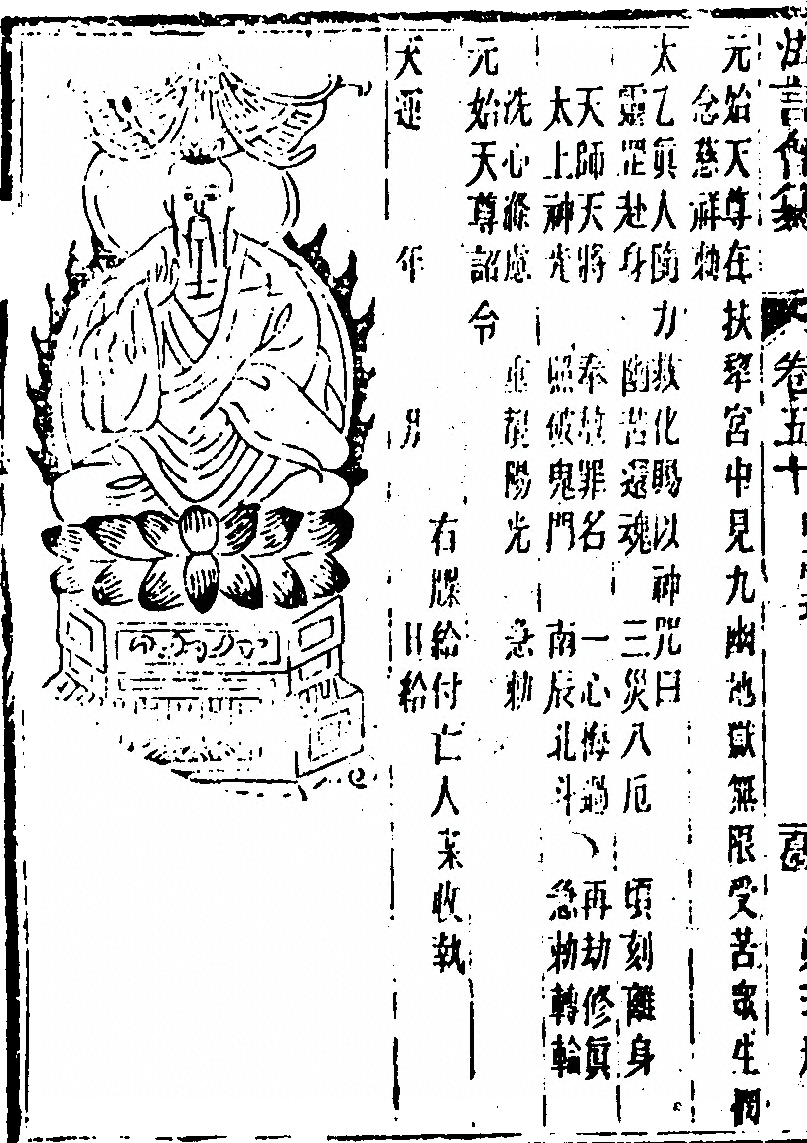 法言會纂 卷五十
元始天尊在扶犂宮中見九幽地獄無限受苦衆生憫
念慈祥勅
太乙眞人力救化賜以神咒曰
靈罡赴身 幽苦還魂 三災八厄 頃刻離身
天師天將 奉罪名 一心悔過 再劫修眞
太上神光 照破鬼門 南辰北斗 急勅轉輪
洗心滌慮 重覩陽光 急勅
元始天尊詔令
右牒給付亡人某收執
天運 年 月 日給